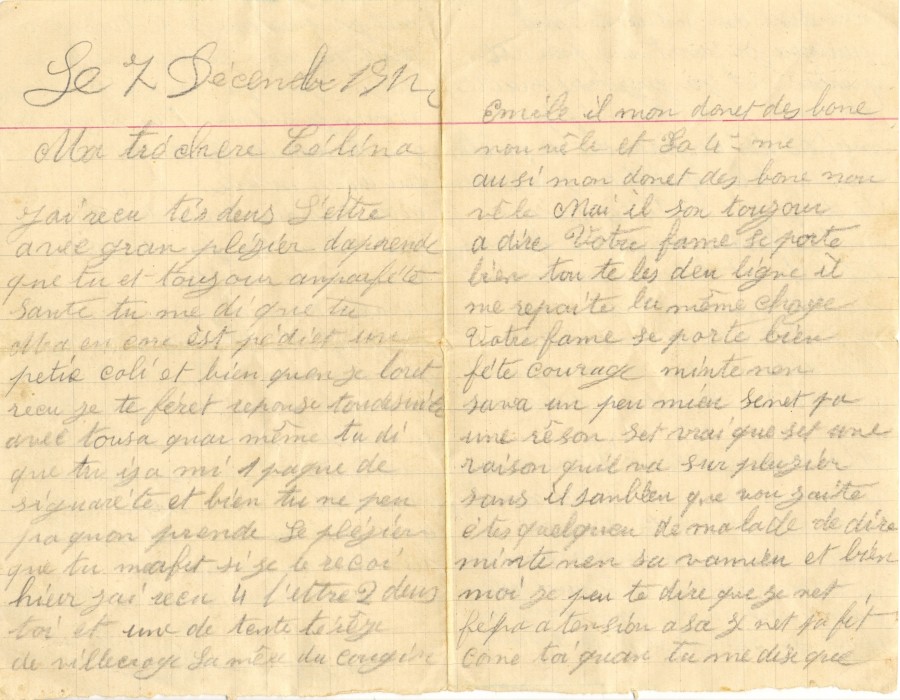 Le 7 Décembre 191
Ma trö chere Céléna
J'ai recu tés deus L'ettre
avec gran plézier daprende
que tu et toujour anparféte
santé tu me di que tu
Ma en core est pédiet un
petie coli et bien quan je loret
recu je te féret reponse toudesuite
avec tousa quai même tu di
que tu iza mi 1 paque de
siguaréte et bien tu ne peu
pa quon prende Le plézier
que tu mafet si je le recoi
hier jai recu 4 l'ettre 2 deus
toi et une de tente térèze
de villecroze La mére du cougin
Emile il mon donet des bone
nouvéle et La 4 me
ausi mon donet des bone nou
véle Mai il son toujour
a dire Votre fame se porte
bien tou te les deu ligne il
me repaite lu même choze
Votre fame se porte bien
féte courage mintenen
sava un peu mieu senet pa
une réson set vrai que set une
raison quil va sur pluzier
sans il sanblen que vou
étes quelqueu de malade de dire
mintenen sa vamieu et bien
moi je peu te dire que je net
fépa atension asa je net pa fét
come toi quan tu me dise que